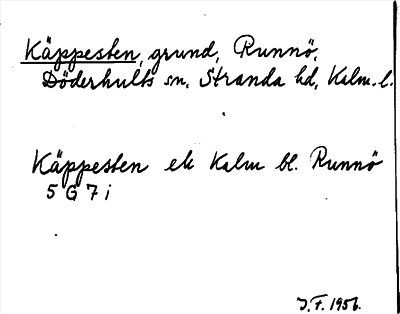 Käppesten, grund, Runnö,
Döderhults sn, Stranda hd, Kalm. l.
Käppesten ek Kalm bl. Runnö
5 G 7 i
J. F. 1956.